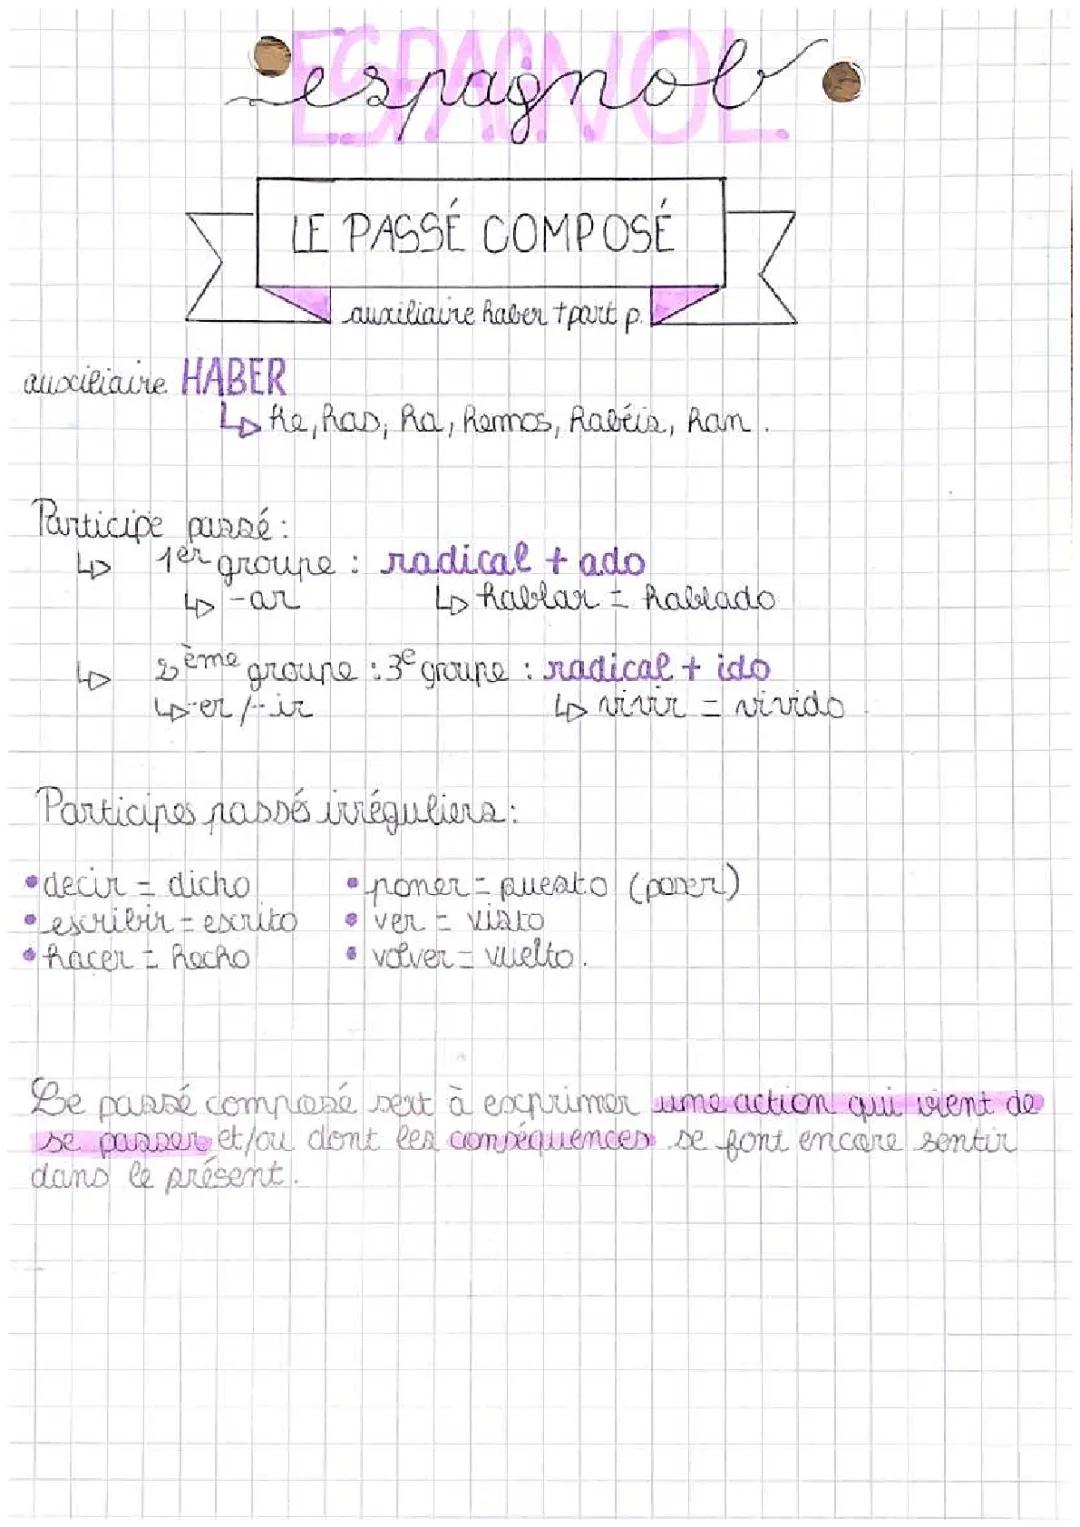 ESPAGNOL
espagnol
LE PASSÉ COMPOSÉ
auxiliaire haber + part p.
auxiliaire HABER
↳ He, has, ha, hemos, habéis, han.
Participe passé :
↳ 1er groupe : radical + ado
↳ -ar ↳ hablar = hablado
↳ 2ème groupe : 3e groupe : radical + ido
↳ -er / -ir ↳ vivir = vivido.
Participes passés irréguliers :
• decir = dicho • poner = puesto (poser)
• escribir = escrito • ver = visto
• hacer = hecho • volver = vuelto.
Le passé composé sert à exprimer une action qui vient de
se passer et/ou dont les conséquences se font encore sentir
dans le présent.